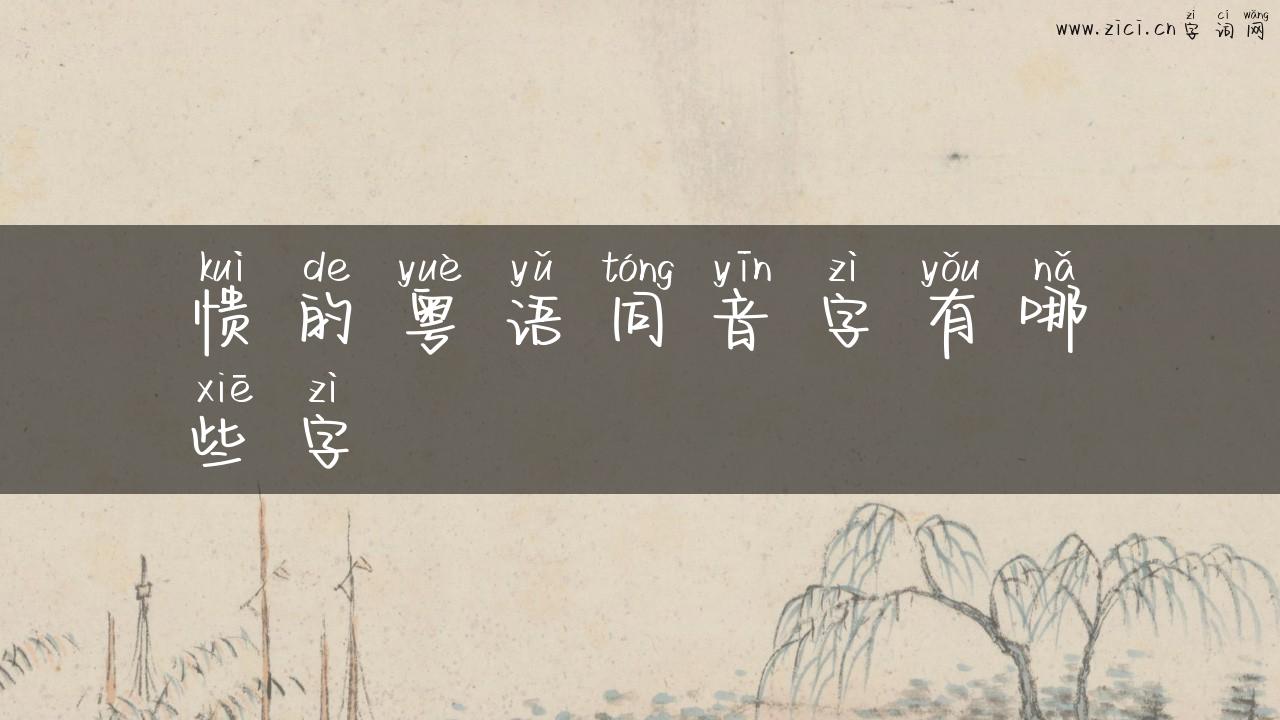 zì cí wǎng
www.zici.cn 字 词 网
kuì de yuè yǔ tóng yīn zì yǒu nǎ
愦 的 粤 语 同 音 字 有 哪
xiē zì
些 字